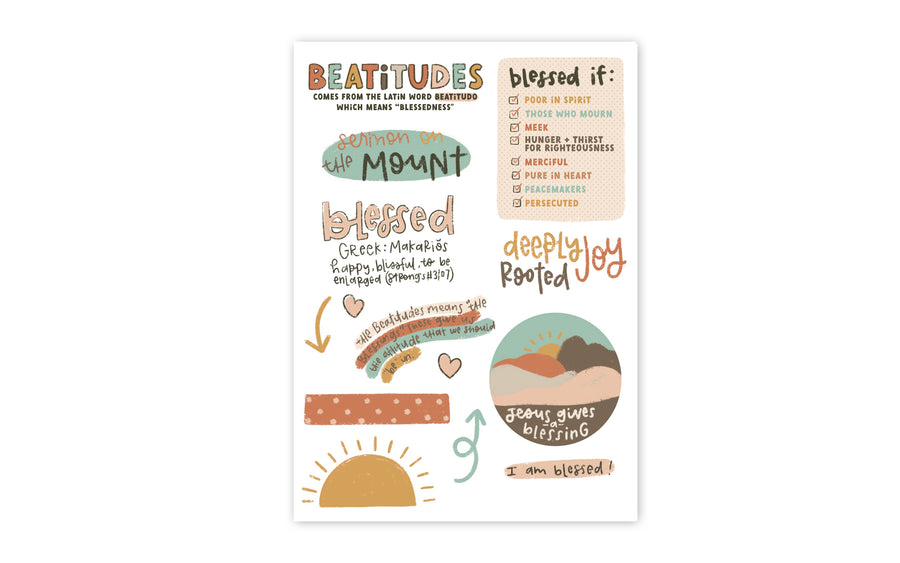 BEATiTUDES
COMES FROM THE LATIN WORD BEATiTUDO
WHICH MEANS "BLESSEDNESS"
sermon on
the MOUNT
blessed
Greek: Makariŏs
happy, blissful, to be
enlarged (Strongs#3107)
the Beatitudes means "the
Blessings". These give us
the attitude that we should
be in.
blessed if:
POOR iN SPiRiT
THOSE WHO MOURN
MEEK
HUNGER + THiRST
FOR RiGHTEOUSNESS
MERCiFUL
PURE iN HEART
PEACEMAKERS
PERSECUTED
deeply
Rooted JOY
Jesus gives
-a-
blessinG
I am blessed!